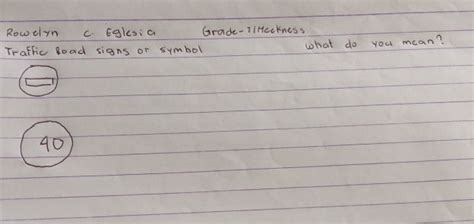 Rowelyn C Eglesia Grade-7/Meekness
Traffic Road signs or symbol what do you mean?
40